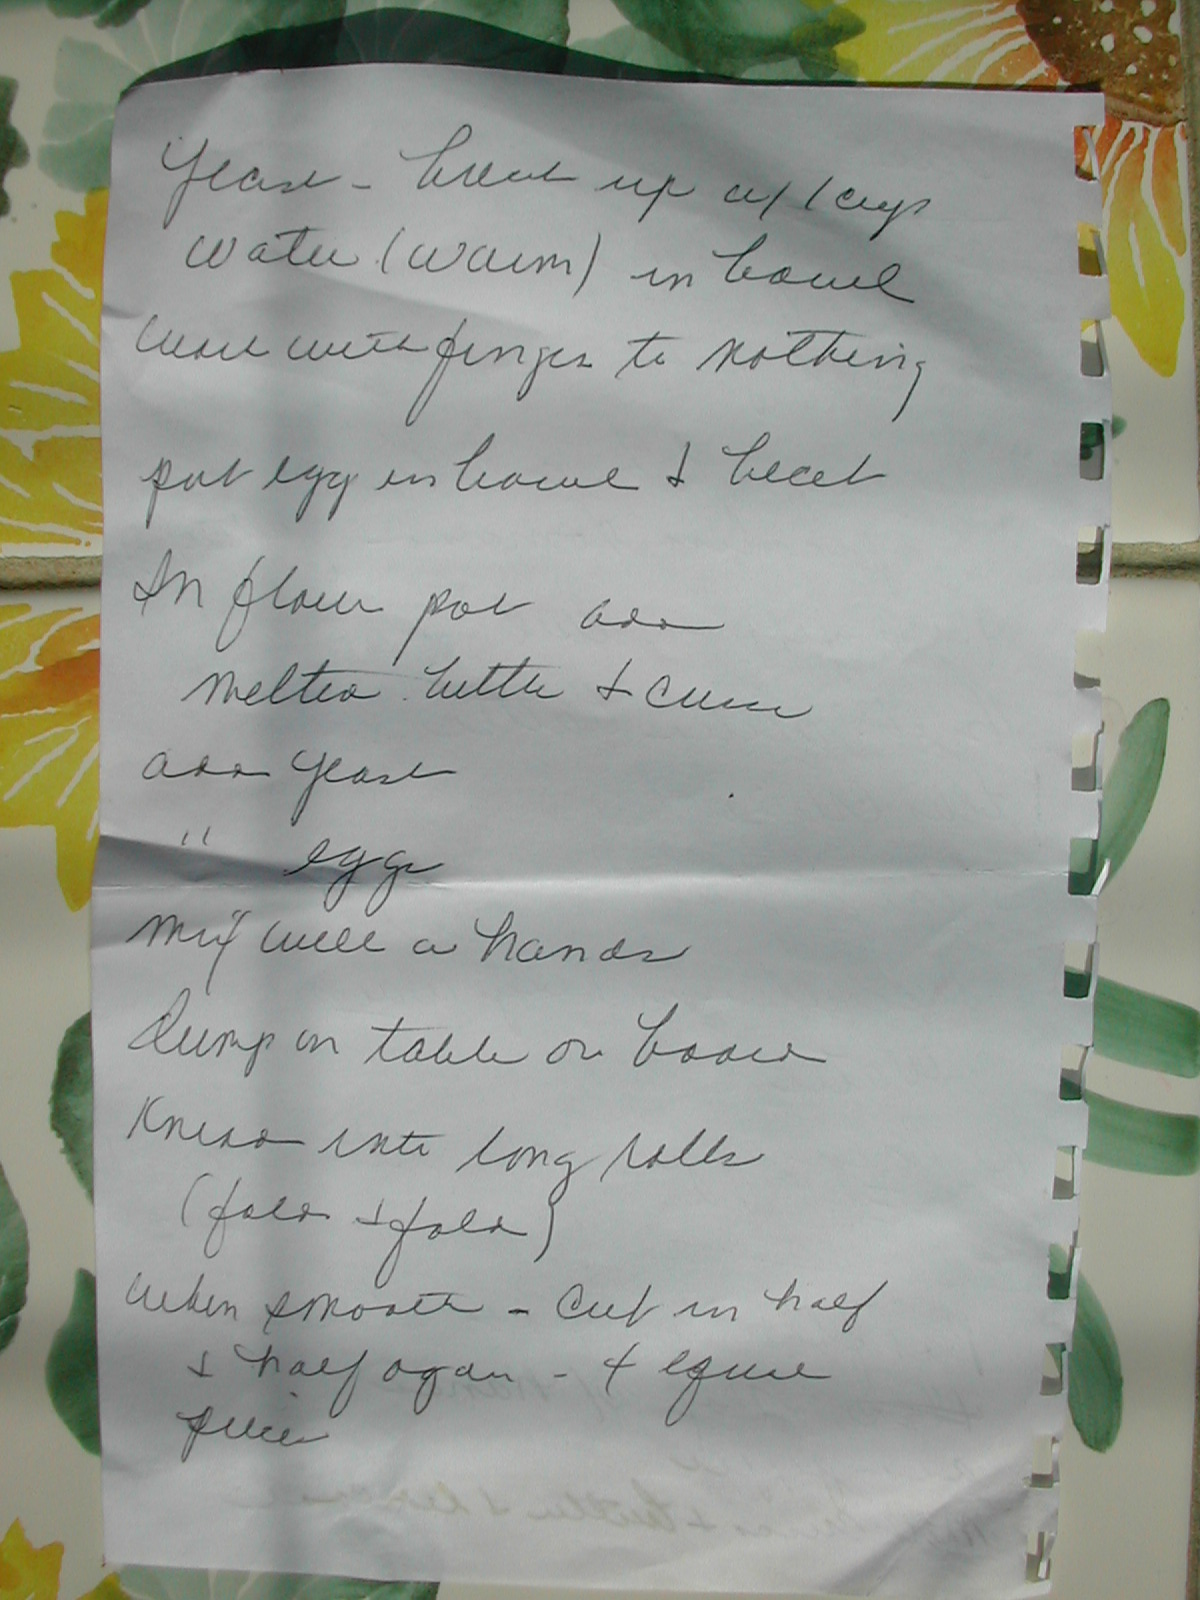 Yeast - break up w/ 1 cup
water (warm) in bowl
work with finger to nothing
put egg in bowl & beat
In flour pot add
melted butter & cream
add yeast
" eggs
mix well c hands
Dump on table or board
Knead into long rolls
(fold & fold)
when smooth - cut in half
& half again - 4 equal
pieces